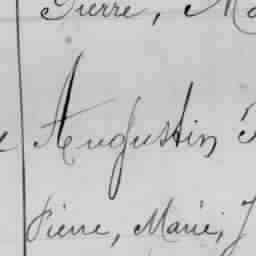 Pierre,
Augustin
Pierre, Marie, J